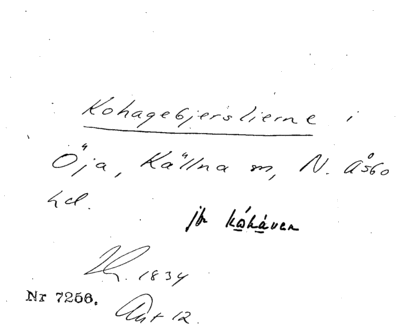 Kohagebjerslierne i
Öja, Källna sn, N. Åsbo
hd.
jfr kåhåven
1834
Nr 7256. Akt 12